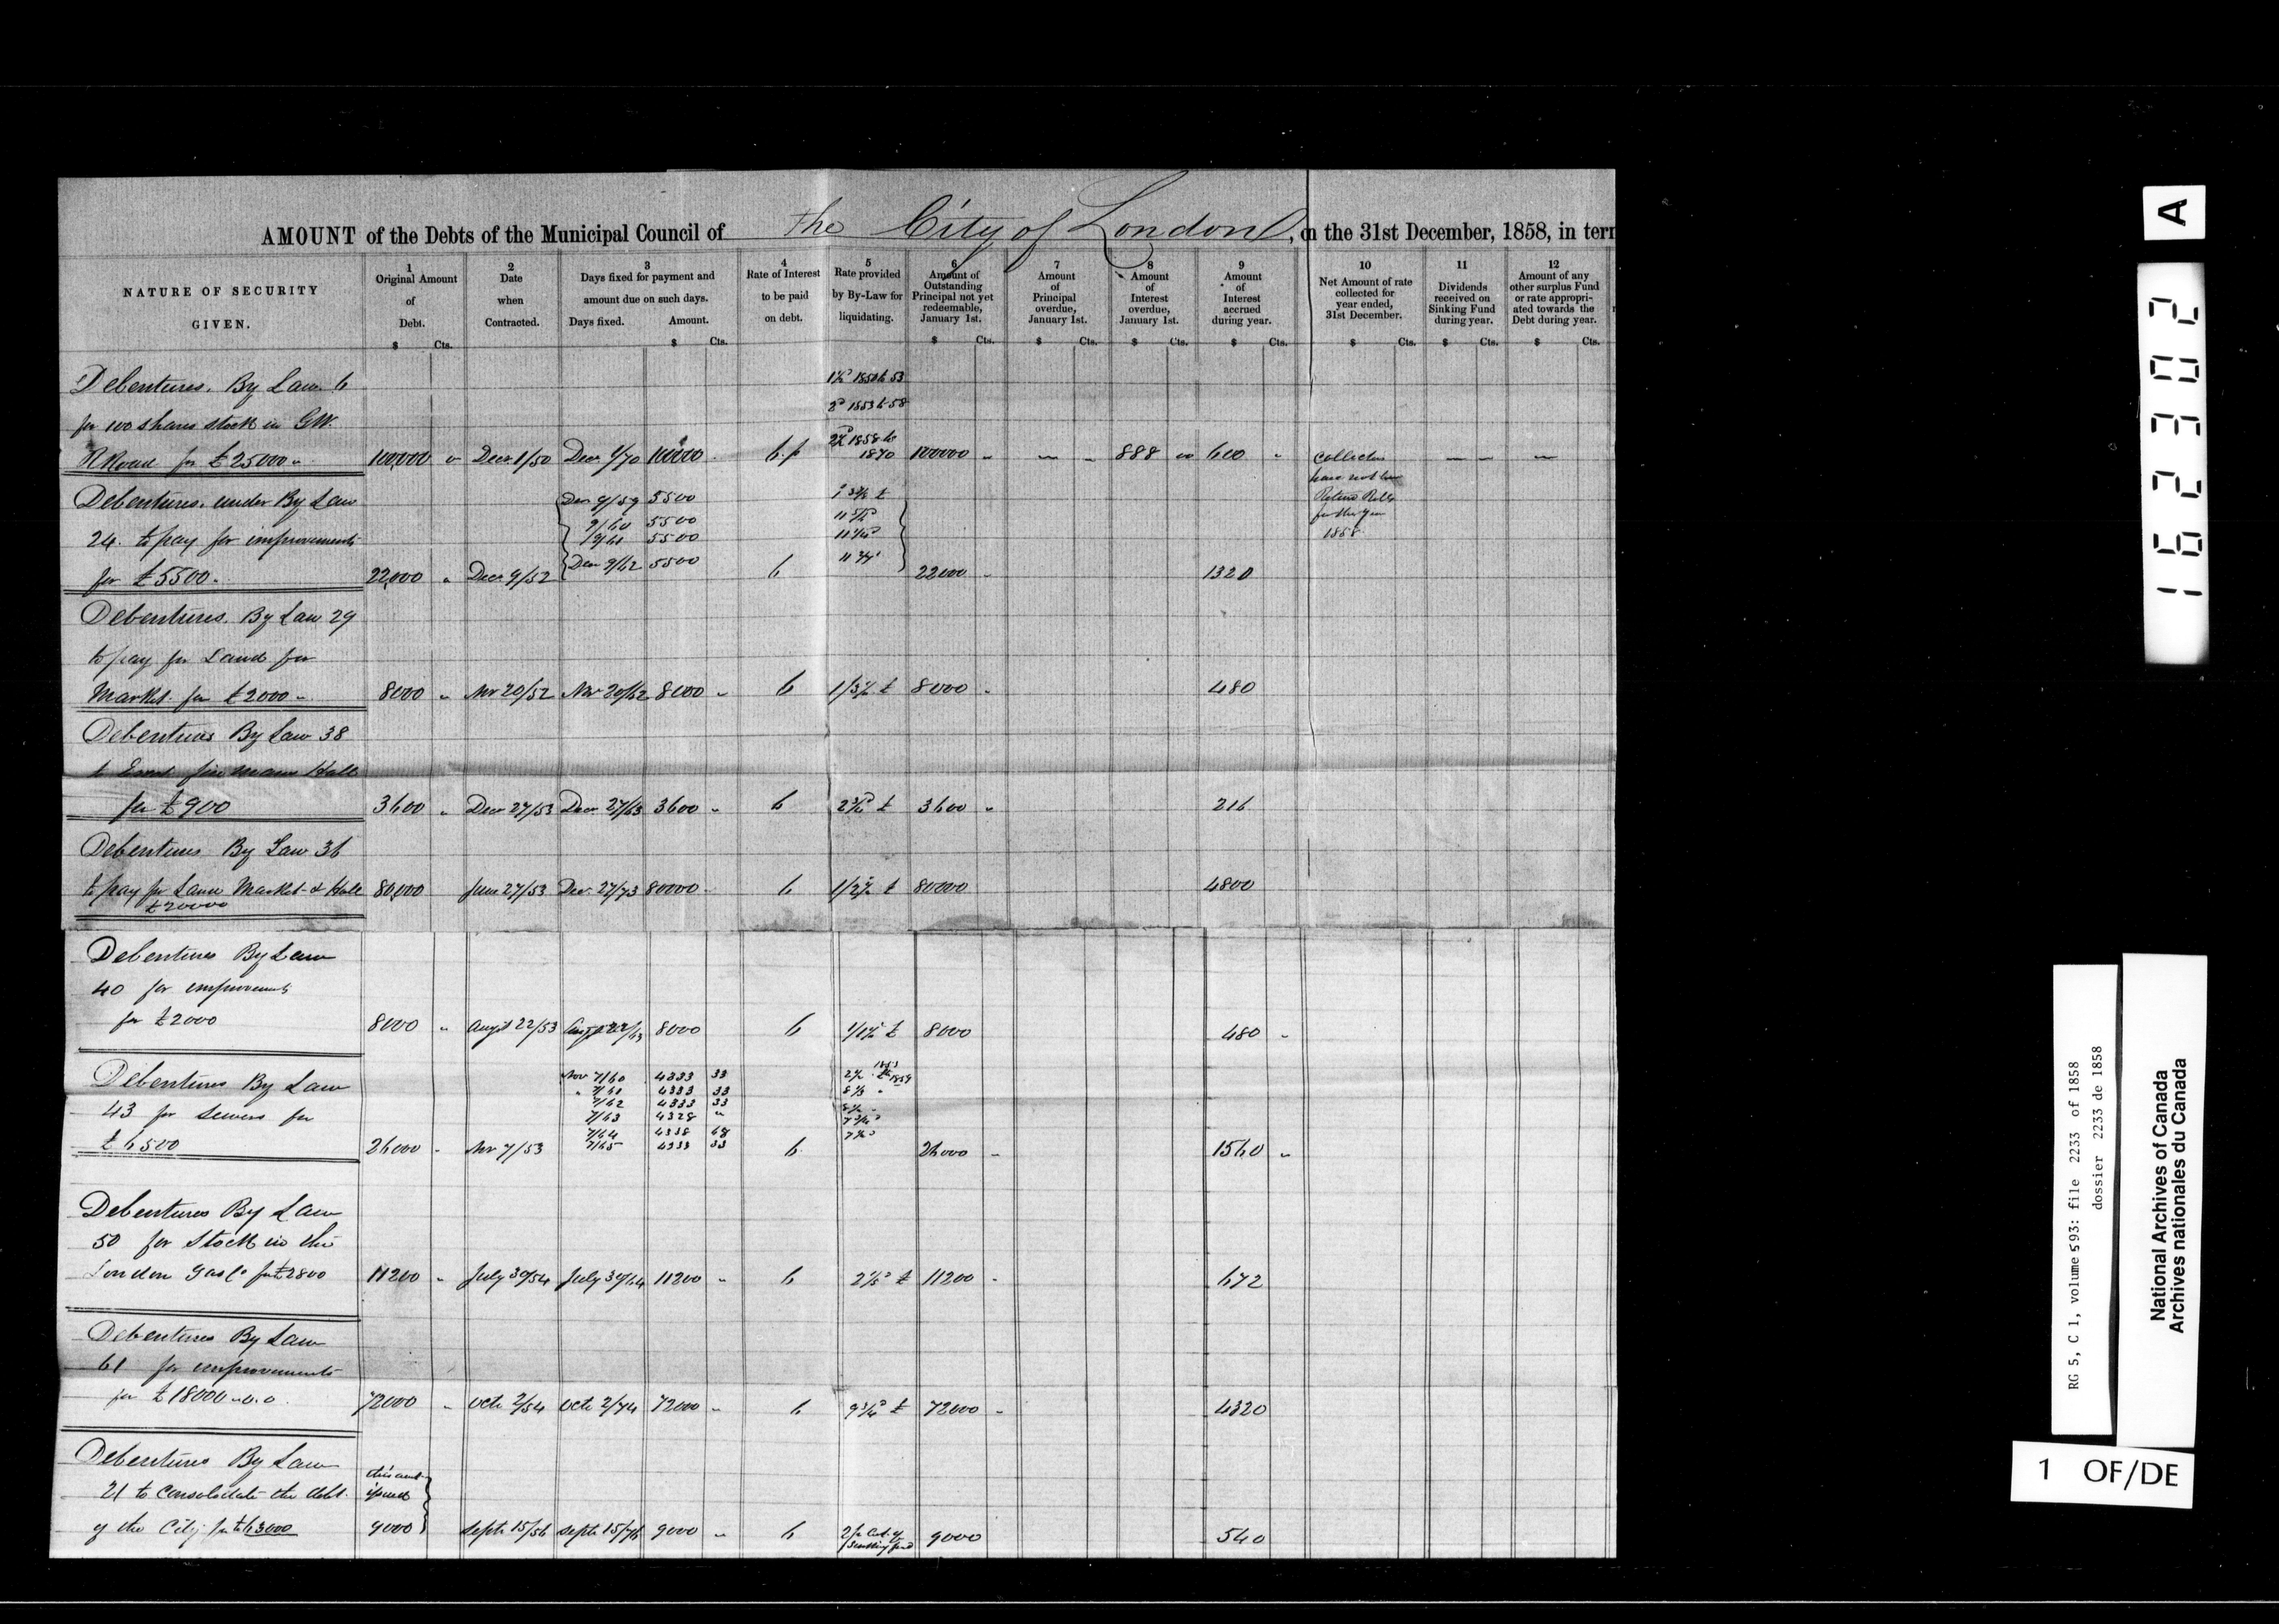 AMOUNT of the Debts of the Municipal Council of the City of London, on the 31st December, 1858, in
NATURE OF SECURITY GIVEN.
1 Original Amount of Debt. $ Cts.
2 Date when Contracted.
3 Days fixed for payment and amount due on such days. Days fixed. Amount. $ Cts.
4 Rate of Interest to be paid on debt.
5 Rate provided by By-Law for liquidating.
6 Amount of Outstanding Principal not yet redeemable, January 1st. $ Cts.
7 Amount of Principal overdue, January 1st. $ Cts.
8 Amount of Interest overdue, January 1st. $ Cts.
9 Amount of Interest accrued during year. $ Cts.
10 Net Amount of rate collected for year ended, 31st December. $ Cts.
11 Dividends received on Sinking Fund during year. $ Cts.
12 Amount of any other surplus Fund or rate appropriated towards the Debt during year. $ Cts.
Debentures. By Law 6
for 100 shares stock in G.W.
R Road for £25000 100,000 Decr 1/50 Decr 1/70 100000 6 p 1858 to 1870 100000 888 600 Collectors
Debentures, under By Law Dec 9/59 5500
9/60 5500 for the year
24. to pay for improvements 9/61 5500 1858
for £5500. 22,000 Decr 9/52 Decr 9/62 5500 6 22000 1320
Debentures. By Law 29
to pay for Land for
Market. for £2000 8000 Nov 20/52 Nov 20/62 8000 6 8000 480
Debentures By Law 38
to Erect fire mans Hall
for £900 3600 Decr 27/53 Decr 27/63 3600 6 3600 216
Debentures By Law 36
to pay for Land Market & Hall 80,000 June 27/53 Dec 27/73 80000 6 80000 4800
£20000
Debentures By Law
40 for improvements
for £2000 8000 Augst 22/53 Augst 22/63 8000 6 8000 480
Debentures By Law Nov 7/60 4333 33
7/61 4333 33
43 for sewers for 7/62 4333 33
7/63 4328
7/64 4338 68
£6500 26000 Nov 7/53 7/65 4333 33 6 26000 1560
Debentures By Law
50 for Stock in the
London Gas Co for £2800 11200 July 30/54 July 30/64 11200 6 11200 672
Debentures By Law
61 for improvements
for £18000 .0.0 72000 Octr 2/54 Octr 2/74 72000 6 72000 4320
Debentures By Law this amt
21 to Consolidate the debt issued
of the City for £63000 9000 Septr 15/56 Septr 15/76 9000 6 2 p Ct of Sinking fund 9000 540
A
162302
RG 5, C 1, volume 593: file 2233 of 1858
dossier 2233 de 1858
National Archives of Canada
Archives nationales du Canada
1 OF/DE